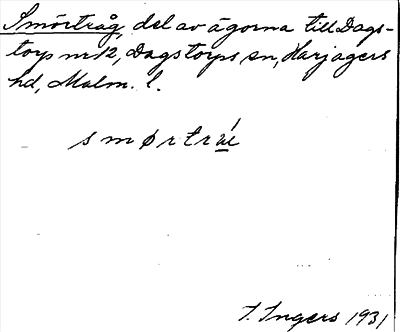 Smörtråg, del av ägorna till Dags-
torp nr 12, Dagstorps sn, Harjagers
hd, Malm. l.
smørtra̲i
I. Ingers 1931